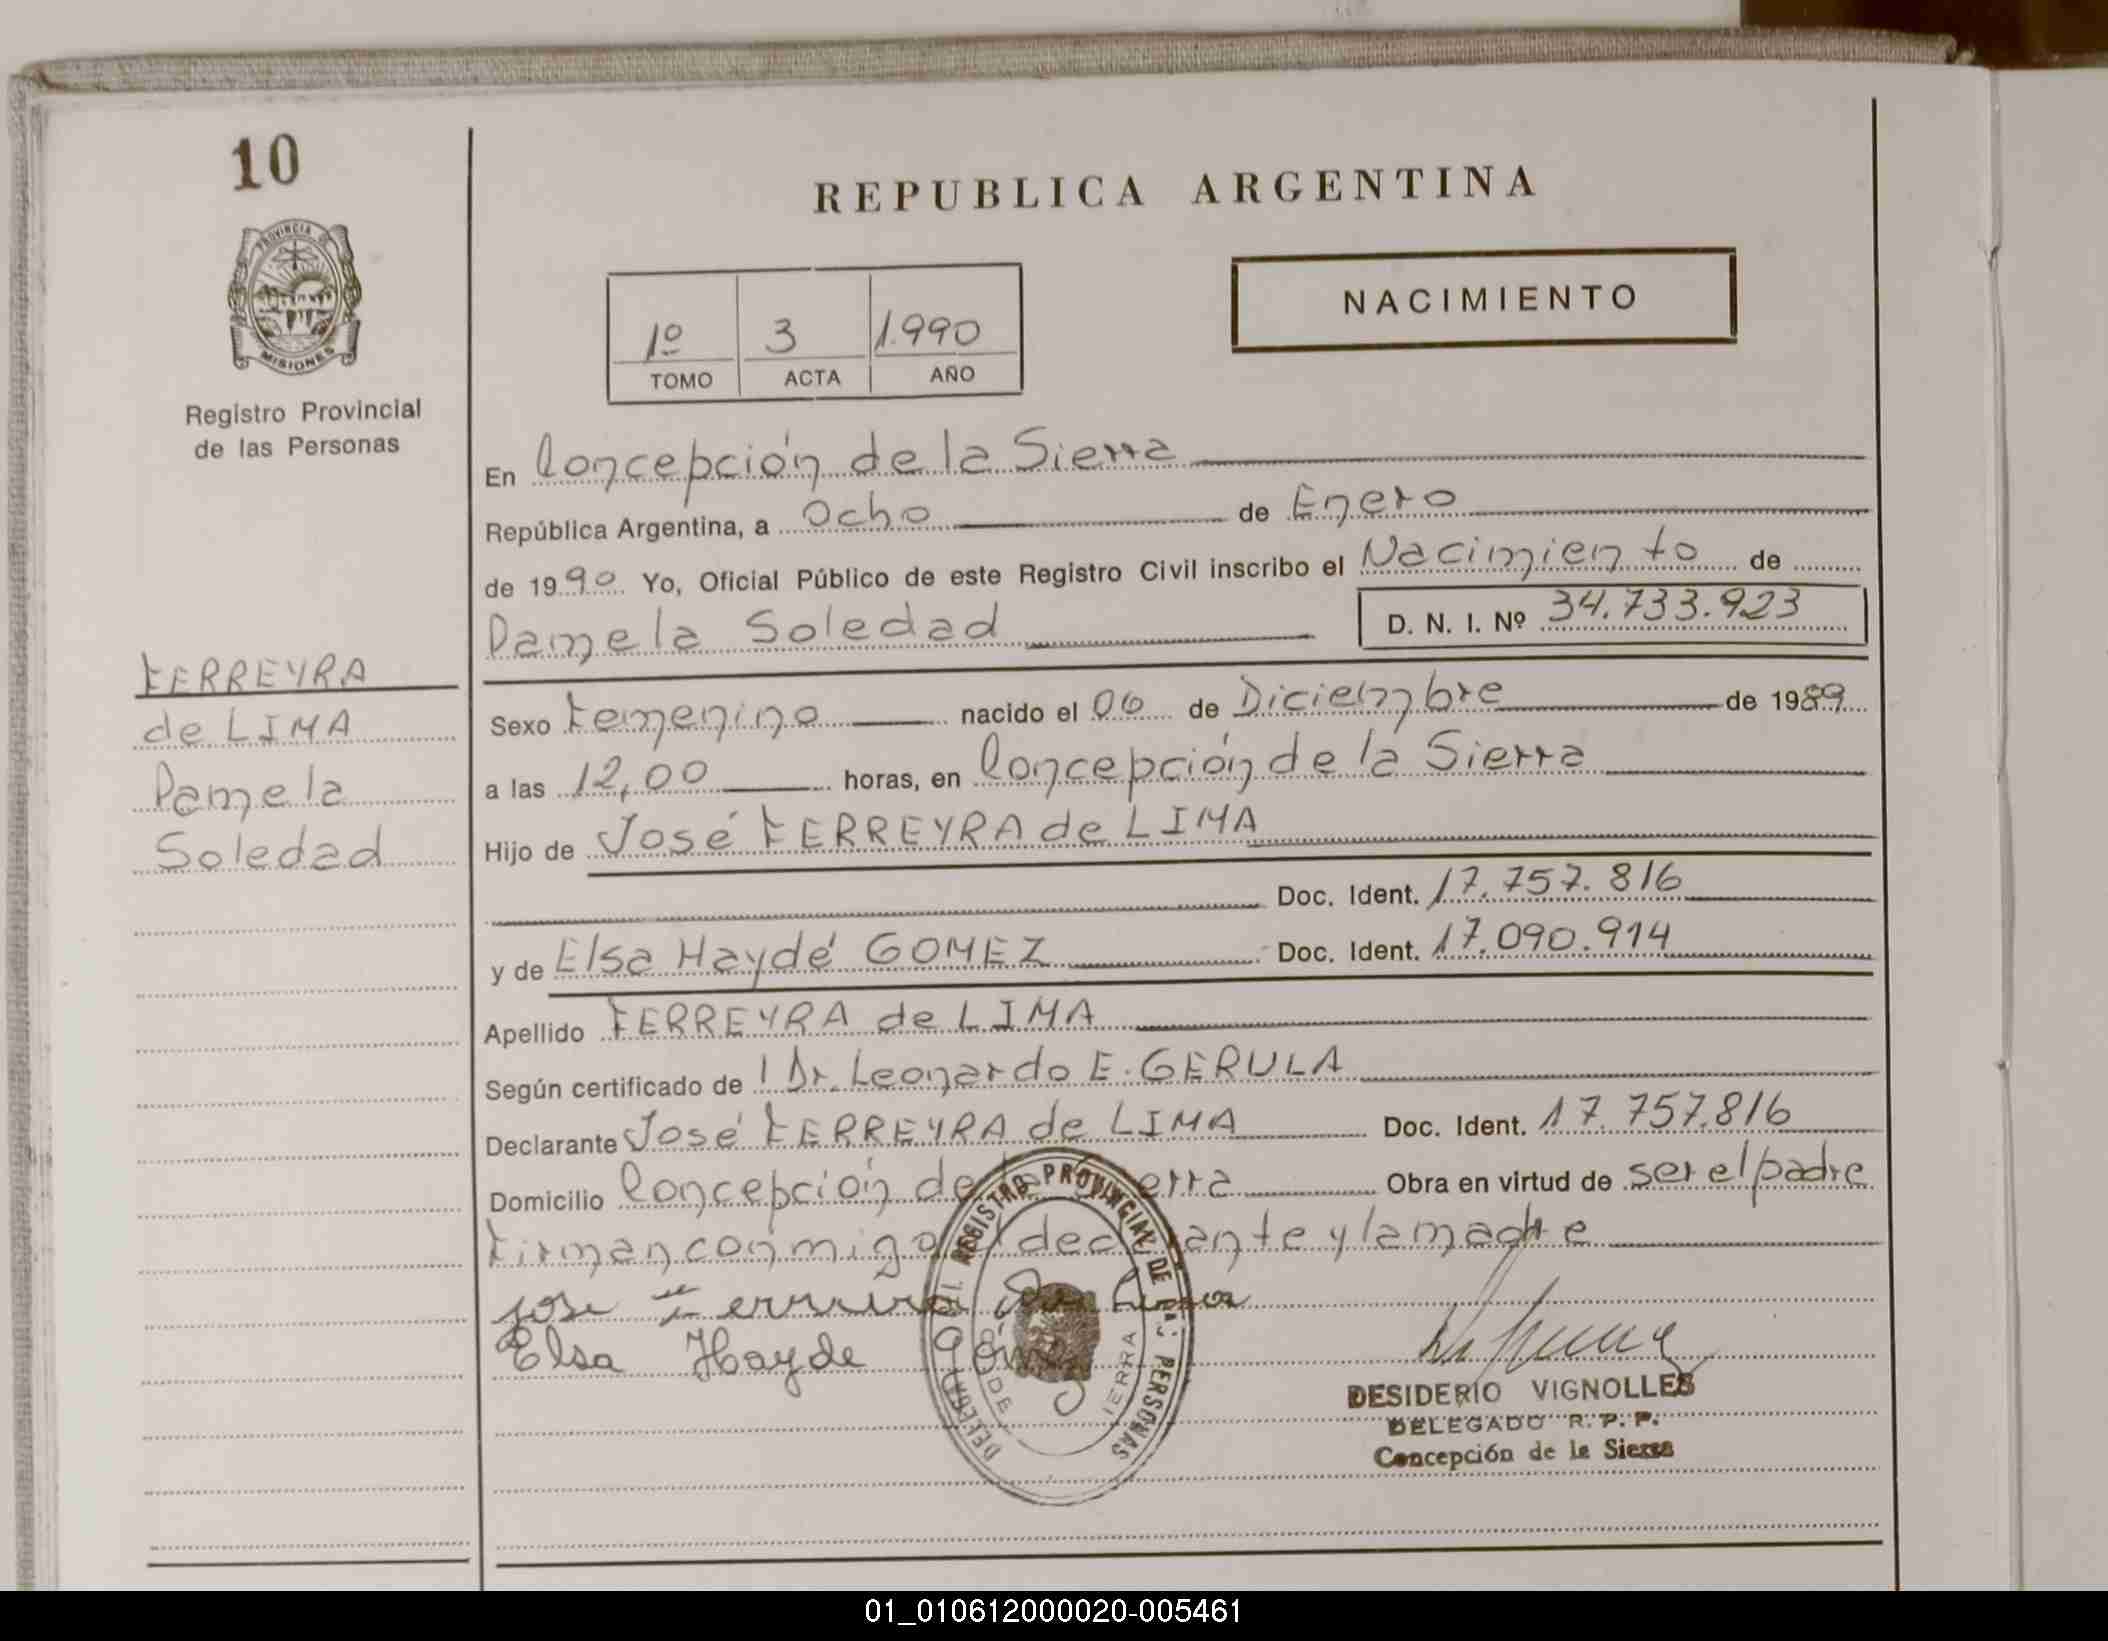 10
REPUBLICA ARGENTINA
PROVINCIA DE
MISIONES
Registro Provincial
de las Personas
1º 3 1.990
TOMO ACTA AÑO
NACIMIENTO
En Concepción de la Sierra
República Argentina, a Ocho de Enero
de 1990 Yo, Oficial Público de este Registro Civil inscribo el Nacimiento de
Pamela Soledad D. N. I. Nº 34.733.923
FERREYRA
de LIMA
Pamela
Soledad
Sexo Femenino nacido el 06 de Diciembre de 1989
a las 12,00 horas, en Concepción de la Sierra
Hijo de José FERREYRA de LIMA
Doc. Ident. 17.757.816
y de Elsa Haydé GOMEZ Doc. Ident. 17.090.914
Apellido FERREYRA de LIMA
Según certificado de l Dr. Leonardo E. GERULA
Declarante José FERREYRA de LIMA Doc. Ident. 17.757.816
Domicilio Concepción de la Sierra Obra en virtud de ser el padre
Firman conmigo el declarante y la madre
jose Ferreira De Lima
Elsa Hayde Gómez
REGISTRO PROVINCIAL DE LAS PERSONAS
DESIDERIO VIGNOLLES
DELEGADO R. P. P.
Concepción de la Sierra
01_010612000020-005461